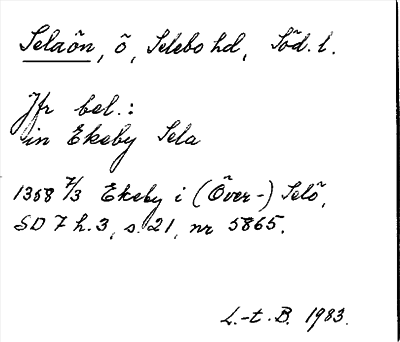 Selaön, ö, Selebo hd, Söd. l.
Jfr bel.:
in Ekeby Sela
1358 7/3 Ekeby i (Över-) Selö,
SD 7 h. 3, s. 21, nr 5865.
L.-t. B. 1983.